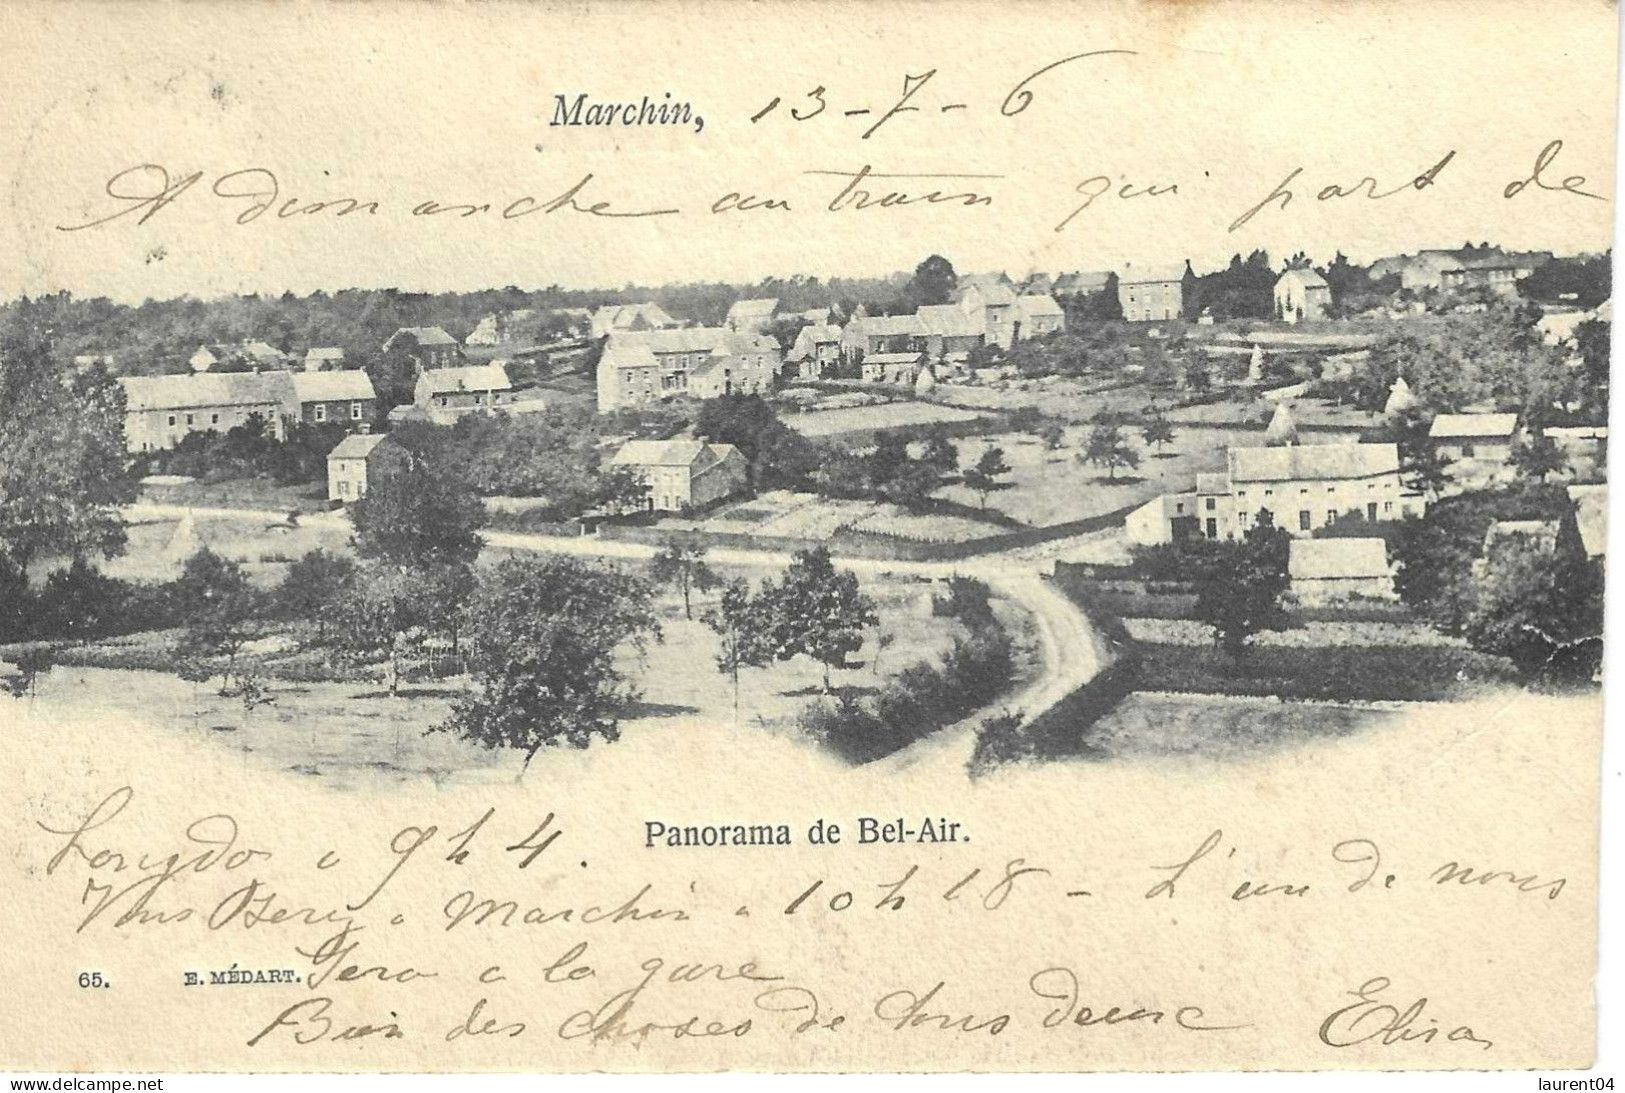 Marchin, 13-7-6
A Dimanche au train qui part de
Panorama de Bel-Air.
Longdoz a 9 h 4.
Vous Serez a Marchin a 10 h 18 - L'un de nous
65. E. MÉDART. Sera a la gare
Bien des choses de tous deux Elisa
delcampe.net
laurent04